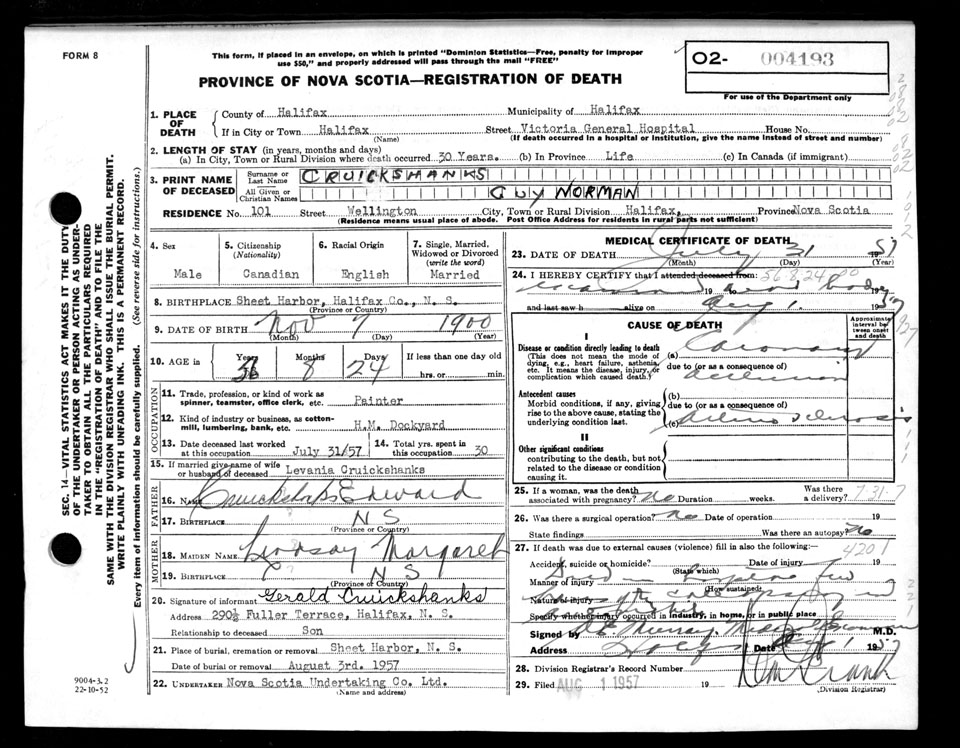 FORM 8
This form, if placed in an envelope, on which is printed "Dominion Statistics—Free, penalty for improper
use $50," and properly addressed will pass through the mail "FREE"
PROVINCE OF NOVA SCOTIA—REGISTRATION OF DEATH
O2- 004193
For use of the Department only
1. PLACE OF DEATH
County of Halifax Municipality of Halifax
If in City or Town Halifax Street Victoria General Hospital House No.
(Name) (If death occurred in a hospital or institution, give the name instead of street and number)
2. LENGTH OF STAY (in years, months and days)
(a) In City, Town or Rural Division where death occurred 30 Years. (b) In Province Life (c) In Canada (if immigrant)
3. PRINT NAME OF DECEASED
Surname or Last Name CRUICKSHANKS
All Given or Christian Names GUY NORMAN
RESIDENCE No. 101 Street Wellington City, Town or Rural Division Halifax, Province Nova Scotia
(Residence means usual place of abode. Post Office Address for residents in rural parts not sufficient)
4. Sex
Male
5. Citizenship
(Nationality)
Canadian
6. Racial Origin
English
7. Single, Married, Widowed or Divorced
(write the word)
Married
8. BIRTHPLACE Sheet Harbor, Halifax Co., N. S.
(Province or Country)
9. DATE OF BIRTH Nov 7 1900
(Month) (Day) (Year)
10. AGE in Years Months Days If less than one day old
8 24 hrs. or min.
OCCUPATION
11. Trade, profession, or kind of work as spinner, teamster, office clerk, etc. Painter
12. Kind of industry or business, as cotton-mill, lumbering, bank, etc. H.M. Dockyard
13. Date deceased last worked at this occupation July 31/57
14. Total yrs. spent in this occupation 30
15. If married give name of wife or husband of deceased Levania Cruickshanks
FATHER
16. NAME Cruickshanks Edward
17. BIRTHPLACE N S
(Province or Country)
MOTHER
18. MAIDEN NAME Lyndsay Margaret
19. BIRTHPLACE N S
(Province or Country)
20. Signature of informant Gerald Cruickshanks
Address 290½ Fuller Terrace, Halifax, N. S.
Relationship to deceased Son
21. Place of burial, cremation or removal Sheet Harbor, N. S.
Date of burial or removal August 3rd. 1957
22. UNDERTAKER Nova Scotia Undertaking Co. Ltd.
(Name and address)
MEDICAL CERTIFICATE OF DEATH
23. DATE OF DEATH July 31 1957
(Month) (Day) (Year)
24. I HEREBY CERTIFY that I attended deceased from:
and last saw h alive on Aug 1 1957
CAUSE OF DEATH
Approximate interval between onset and death
I
Disease or condition directly leading to death
(This does not mean the mode of dying, e.g., heart failure, asthenia, etc. It means the disease, injury, or complication which caused death.)
(a) Coronary
due to (or as a consequence of)
occlusion
Antecedent causes
Morbid conditions, if any, giving rise to the above cause, stating the underlying condition last.
(b)
due to (or as a consequence of)
(c)
II
Other significant conditions
contributing to the death, but not related to the disease or condition causing it.
25. If a woman, was the death associated with pregnancy? No Duration weeks. Was there a delivery?
26. Was there a surgical operation? No Date of operation 19
State findings Was there an autopsy? No
27. If death was due to external causes (violence) fill in also the following:— 4201
Accident, suicide or homicide? Date of injury 19
(State which)
Manner of injury
(How sustained)
Nature of injury
Specify whether injury occurred in industry, in home, or in public place
Signed by Murray M.D.
Address Date Aug 1 1957
28. Division Registrar's Record Number
29. Filed AUG 1 1957 19
(Division Registrar)
SEC. 14—VITAL STATISTICS ACT MAKES IT THE DUTY
OF THE UNDERTAKER OR PERSON ACTING AS UNDER-
TAKER TO OBTAIN ALL THE PARTICULARS REQUIRED
IN THE "REGISTRATION OF DEATH" AND TO FILE THE
SAME WITH THE DIVISION REGISTRAR WHO SHALL ISSUE THE BURIAL PERMIT.
WRITE PLAINLY WITH UNFADING INK. THIS IS A PERMANENT RECORD.
Every item of information should be carefully supplied. (See reverse side for instructions.)
9004-3.2
22-10-52